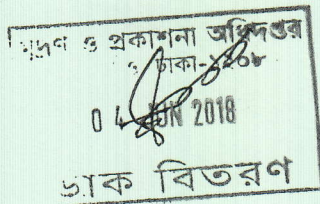 মুদ্রণ ও প্রকাশনা অধিদপ্তর
ঢাকা-১২০৮
0 4 JUN 2018
ডাক বিতরণ